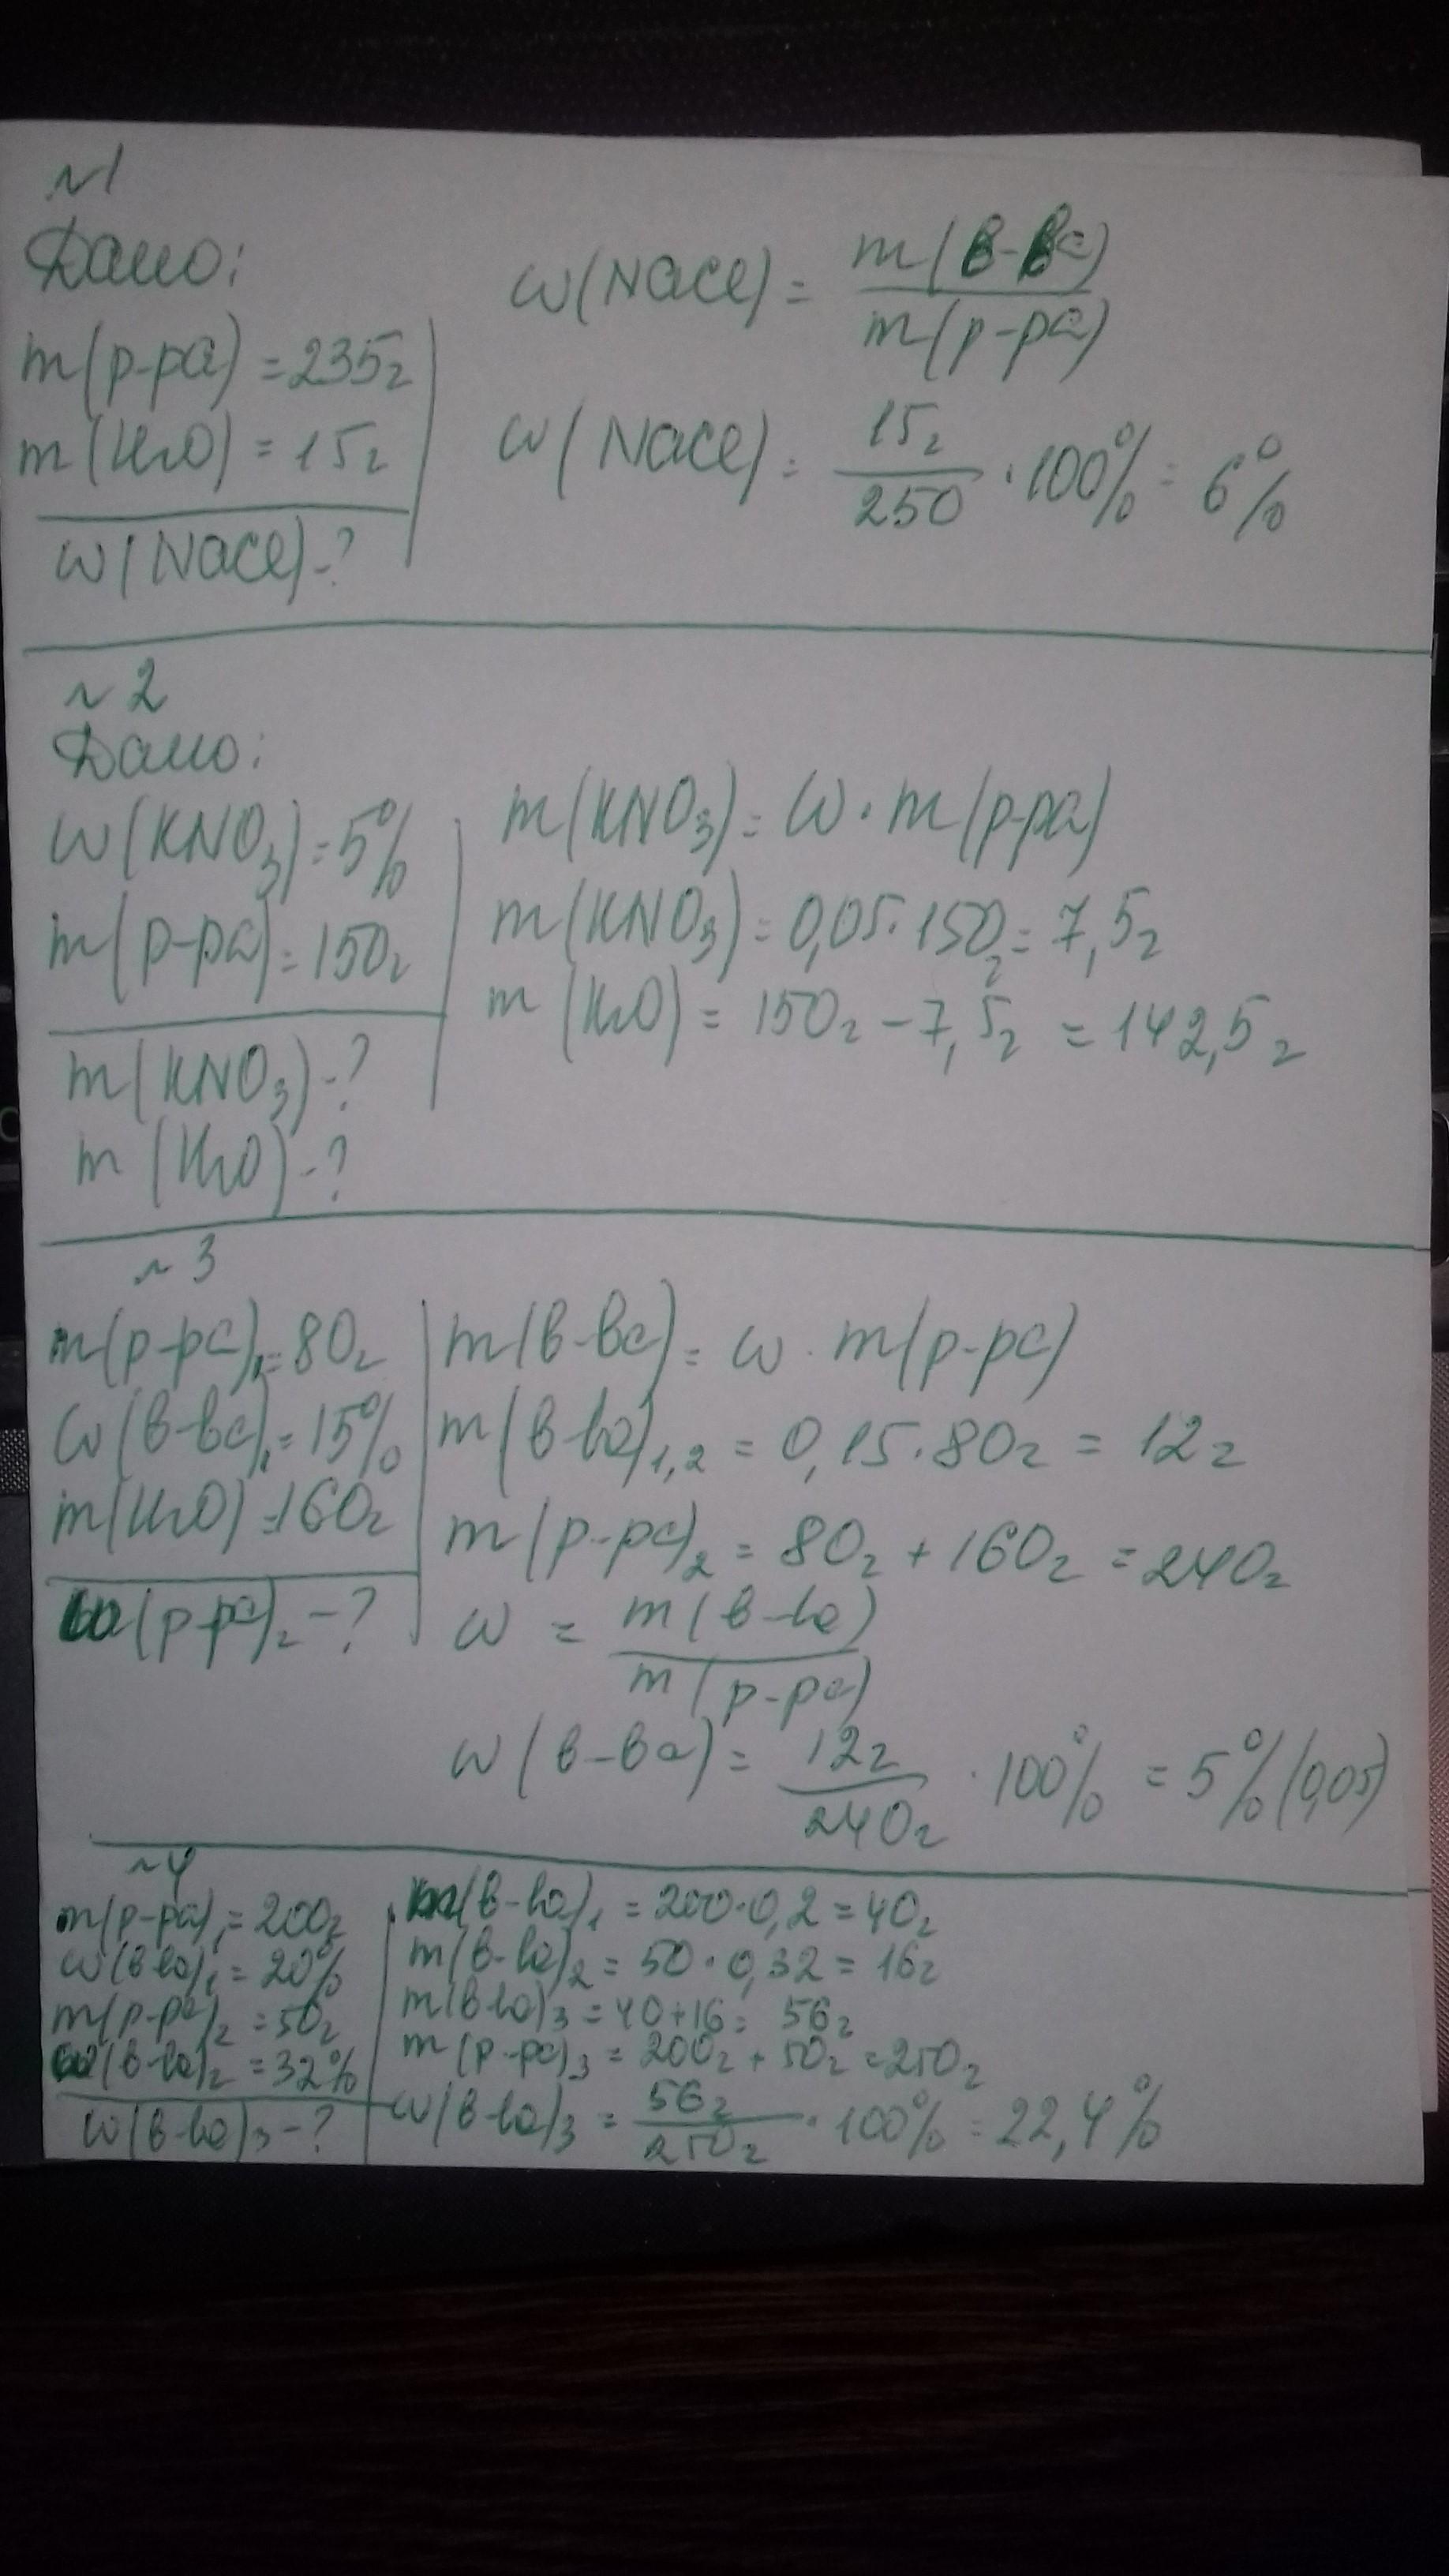 №1
Дано:
m(р-ра) = 235г
m(H₂O) = 15г
ω(NaCl)-?
ω(NaCl) = m(в-ва) / m(р-ра)
ω(NaCl) = 15г / 250 · 100% = 6%
№2
Дано:
ω(KNO₃) = 5%
m(р-ра) = 150г
m(KNO₃)-?
m(H₂O)-?
m(KNO₃) = ω · m(р-ра)
m(KNO₃) = 0,05 · 150г = 7,5г
m(H₂O) = 150г - 7,5г = 142,5г
№3
m(р-ра)₁ = 80г
ω(в-ва)₁ = 15%
m(H₂O) = 160г
ω(р-ра)₂ -?
m(в-ва) = ω · m(р-ра)
m(в-ва)₁,₂ = 0,15 · 80г = 12г
m(р-ра)₂ = 80г + 160г = 240г
ω = m(в-ва) / m(р-ра)
ω(в-ва) = 12г / 240г · 100% = 5% (0,05)
№4
m(р-ра)₁ = 200г
ω(в-ва)₁ = 20%
m(р-ра)₂ = 50г
ω(в-ва)₂ = 32%
ω(в-ва)₃ -?
m(в-ва)₁ = 200 · 0,2 = 40г
m(в-ва)₂ = 50 · 0,32 = 16г
m(в-ва)₃ = 40+16 = 56г
m(р-ра)₃ = 200г + 50г = 250г
ω(в-ва)₃ = 56г / 250г · 100% = 22,4%